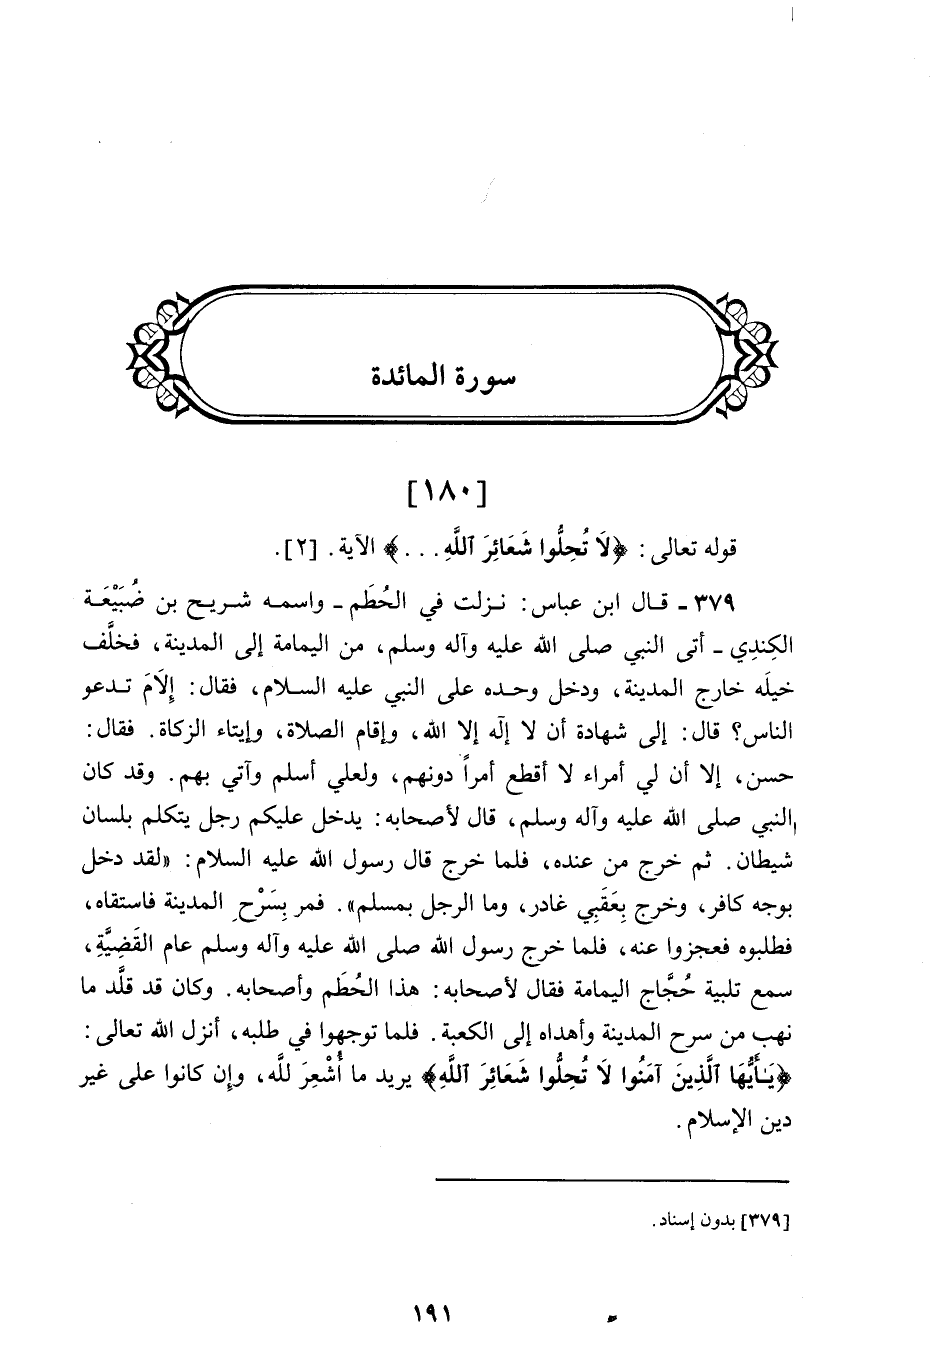 سورة المائدة
[١٨٠]
قوله تعالى: ﴿لَا تُحِلُّوا شَعَائِرَ ٱللَّهِ. . .﴾ الآية. [٢].
٣٧٩ - قـال ابن عباس: نـزلت في الحُطَم - واسمـه شـريـح بن ضُبَيْعَـة
الكِندِي - أتى النبي صلى الله عليه وآله وسلم، من اليمامة إلى المدينة، فخلَّف
خيلَه خارج المدينة، ودخل وحـده على النبي عليه السـلام، فقال: إِلَامَ تـدعو
الناس؟ قال: إلى شهادة أن لا إلٰه إلا الله، وإقام الصلاة، وإيتاء الزكاة. فقال:
حسن، إلا أن لي أمراء لا أقطع أمراً دونهم، ولعلي أسلم وآتي بهم. وقد كان
النبي صلى الله عليه وآله وسلم، قال لأصحابه: يدخل عليكم رجل يتكلم بلسان
شيطان. ثم خرج من عنده، فلما خرج قال رسول الله عليه السلام: «لقد دخل
بوجه كافر، وخرج بِعَقَبِي غادر، وما الرجل بمسلم». فمر بِسَرْحِ المدينة فاستقاه،
فطلبوه فعجزوا عنه، فلما خرج رسول الله صلى الله عليه وآله وسلم عام القَضِيَّةِ،
سمع تلبية حُجَّاج اليمامة فقال لأصحابه: هذا الحُطَم وأصحابه. وكان قد قلَّد ما
نهب من سرح المدينة وأهداه إلى الكعبة. فلما توجهوا في طلبه، أنزل الله تعالى:
﴿يَـٰأَيُّهَا ٱلَّذِينَ آمَنُوا لَا تُحِلُّوا شَعَائِرَ ٱللَّهِ﴾ يريد ما أُشْعِرَ للَّه، وإن كانوا على غير
دين الإسلام.
[٣٧٩] بدون إسناد.
١٩١